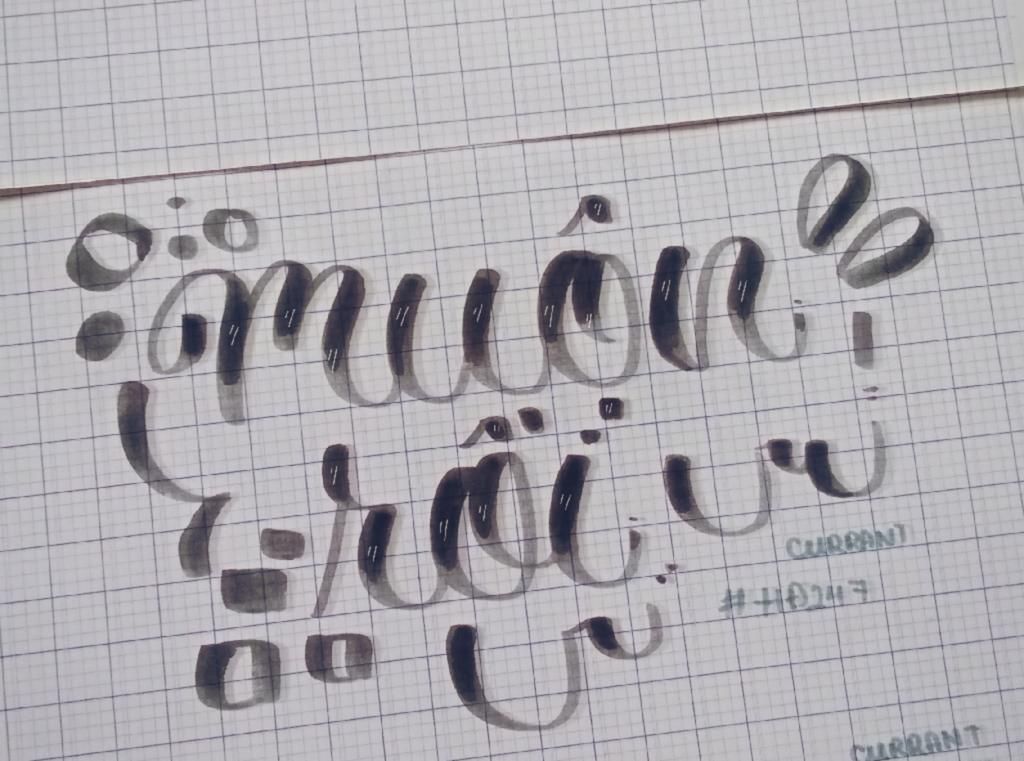 muôn
rồi
CURRANT
#HĐ247
CURRANT